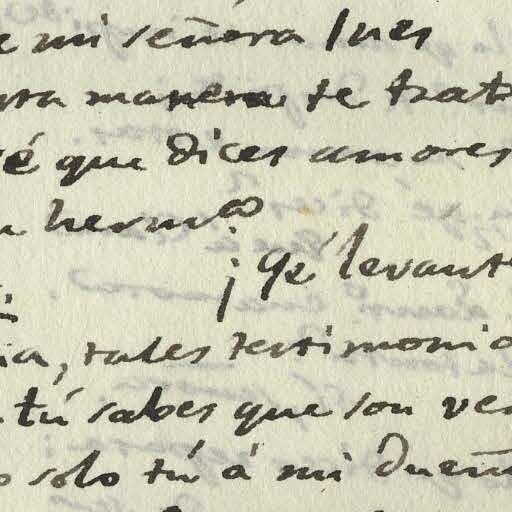 e mi señora Ines
manera te trat
é que dices amores
herm.ª
¡Qé levant
tales testimonio
tú sabes que son ve
o solo tú á mi dueñ